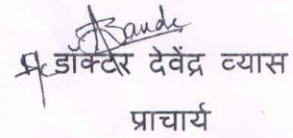 डॉक्टर देवेंद्र व्यास
प्राचार्य